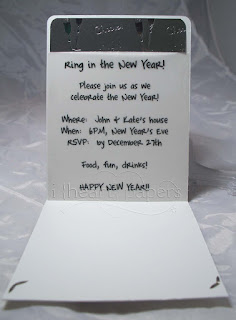 Ring in the New Year!
Please join us as we
celebrate the New Year!
Where: John & Kate's house
When: 6PM, New Year's Eve
RSVP: by December 27th
Food, fun, drinks!
HAPPY NEW YEAR!!
i {heart} papers